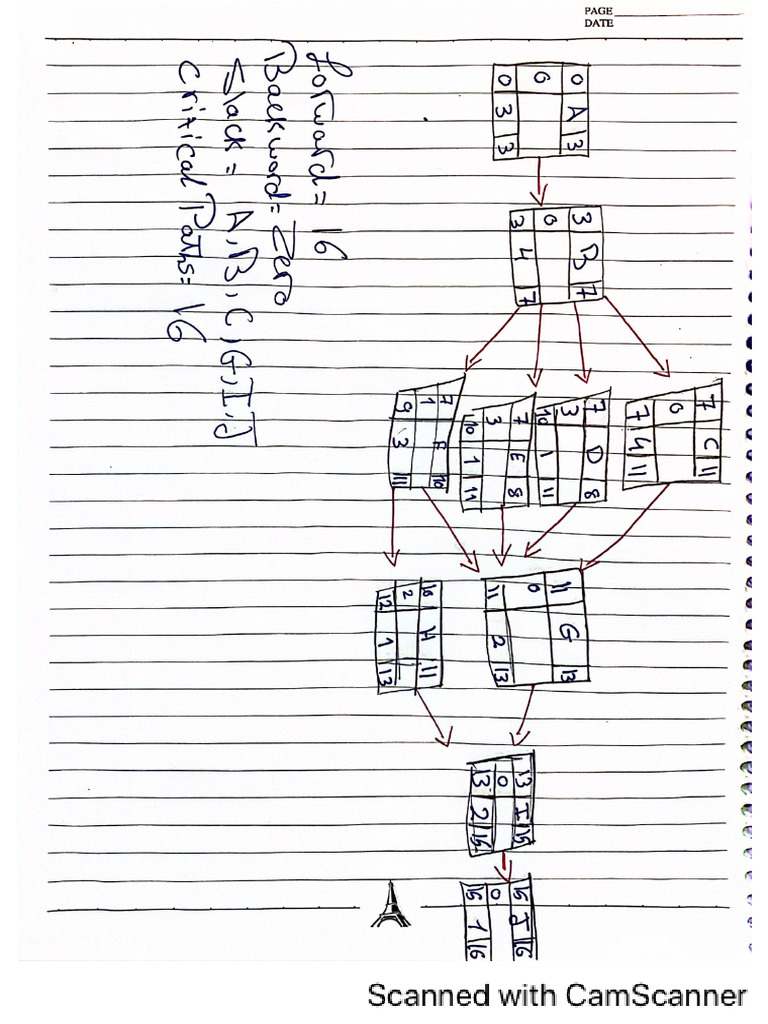 PAGE
DATE
0 A 3
0
0 3 3
3 B 7
0
3 4 7
7 C 11
0
7 4 11
7 D 8
3
10 1 11
7 E 8
3
10 1 11
7 F 10
1
9 3 11
11 G 13
0
11 2 13
10 H 11
2
12 1 13
13 I 15
0
13 2 15
15 J 16
0
15 1 16
forward = 16
Backward = Zero
Slack = A, B, C, G, I, J
Critical Paths = 16
Scanned with CamScanner